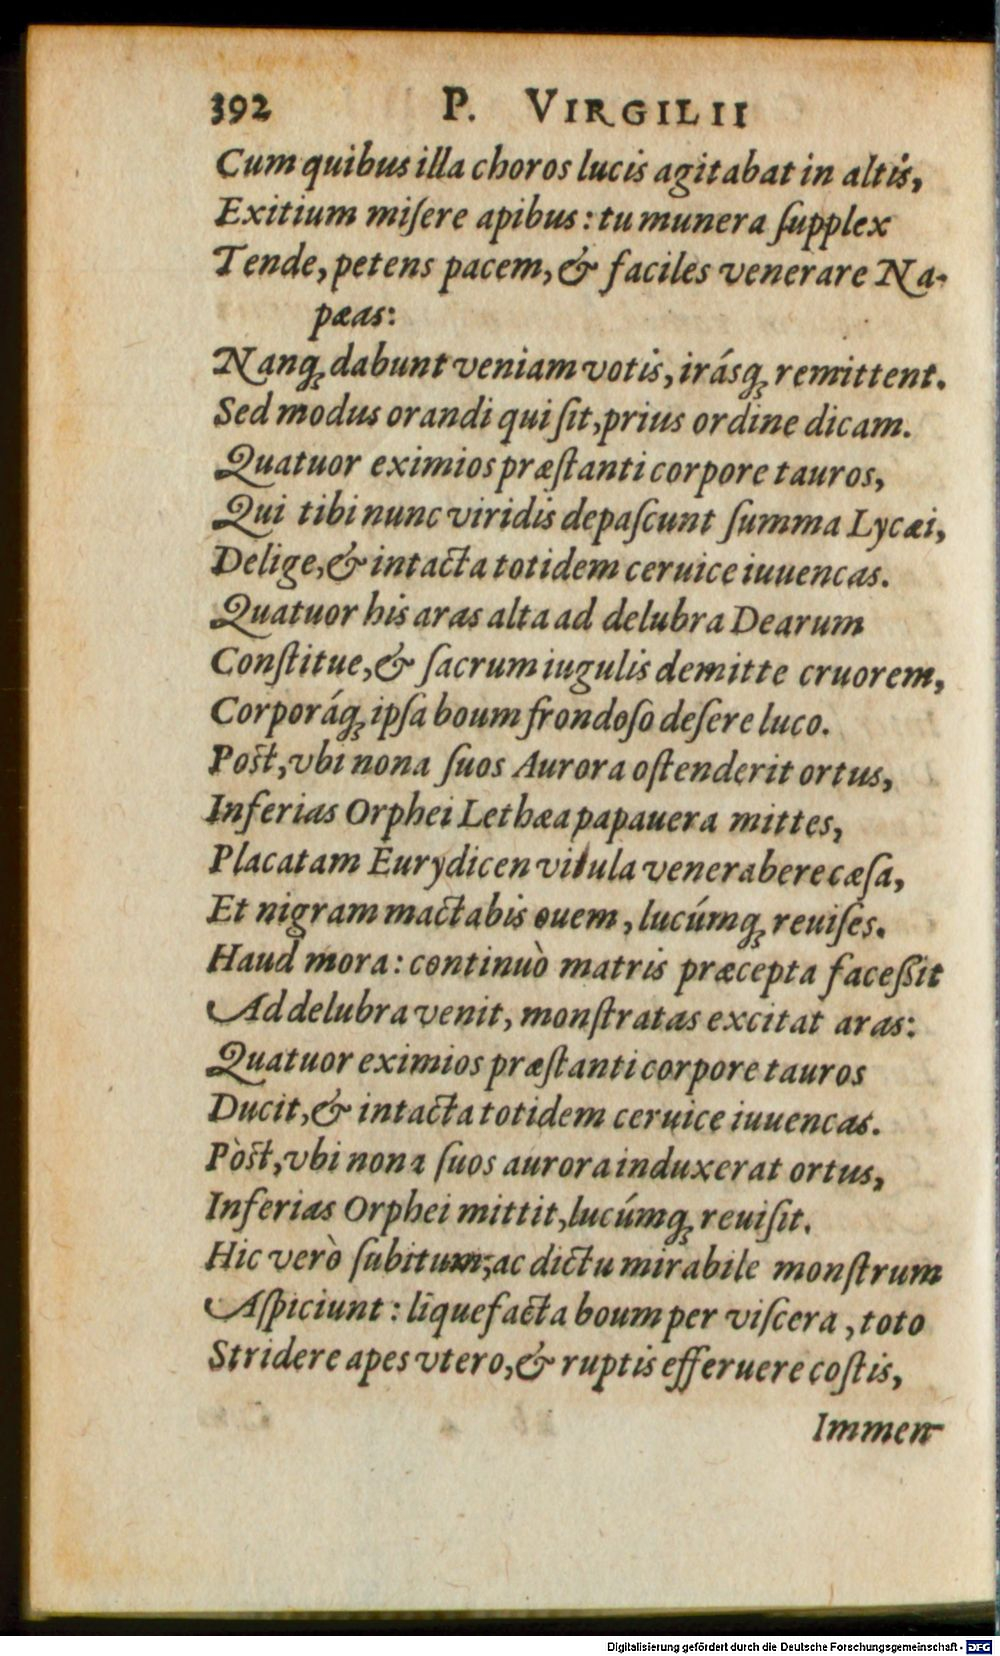 392 P. VIRGILII
Cum quibus illa choros lucis agitabat in altis,
Exitium miſere apibus: tu munera ſupplex
Tende, petens pacem, & faciles venerare Na-
pæas:
Nanq́; dabunt veniam votis, irásq́; remittent.
Sed modus orandi qui ſit, prius ordine dicam.
Quatuor eximios præſtanti corpore tauros,
Qui tibi nunc viridis depaſcunt ſumma Lycæi,
Delige, & intacta totidem ceruice iuuencas.
Quatuor his aras alta ad delubra Dearum
Conſtitue, & ſacrum iugulis demitte cruorem,
Corporáq; ipſa boum frondoſo deſere luco.
Poſt, vbi nona ſuos Aurora oſtenderit ortus,
Inferias Orphei Lethæa papauera mittes,
Placatam Eurydicen vitula venerabere cæſa,
Et nigram mactabis ouem, lucúmq; reuiſes.
Haud mora: continuò matris præcepta faceſſit
Ad delubra venit, monſtratas excitat aras:
Quatuor eximios præſtanti corpore tauros
Ducit, & intacta totidem ceruice iuuencas.
Pòſt, vbi nona ſuos aurora induxerat ortus,
Inferias Orphei mittit, lucúmq; reuiſit.
Hic verò ſubitum, ac dictu mirabile monſtrum
Aſpiciunt: liquefacta boum per viſcera, toto
Stridere apes vtero, & ruptis efferuere coſtis,
Immen-
Digitalisierung gefördert durch die Deutsche Forschungsgemeinschaft - DFG